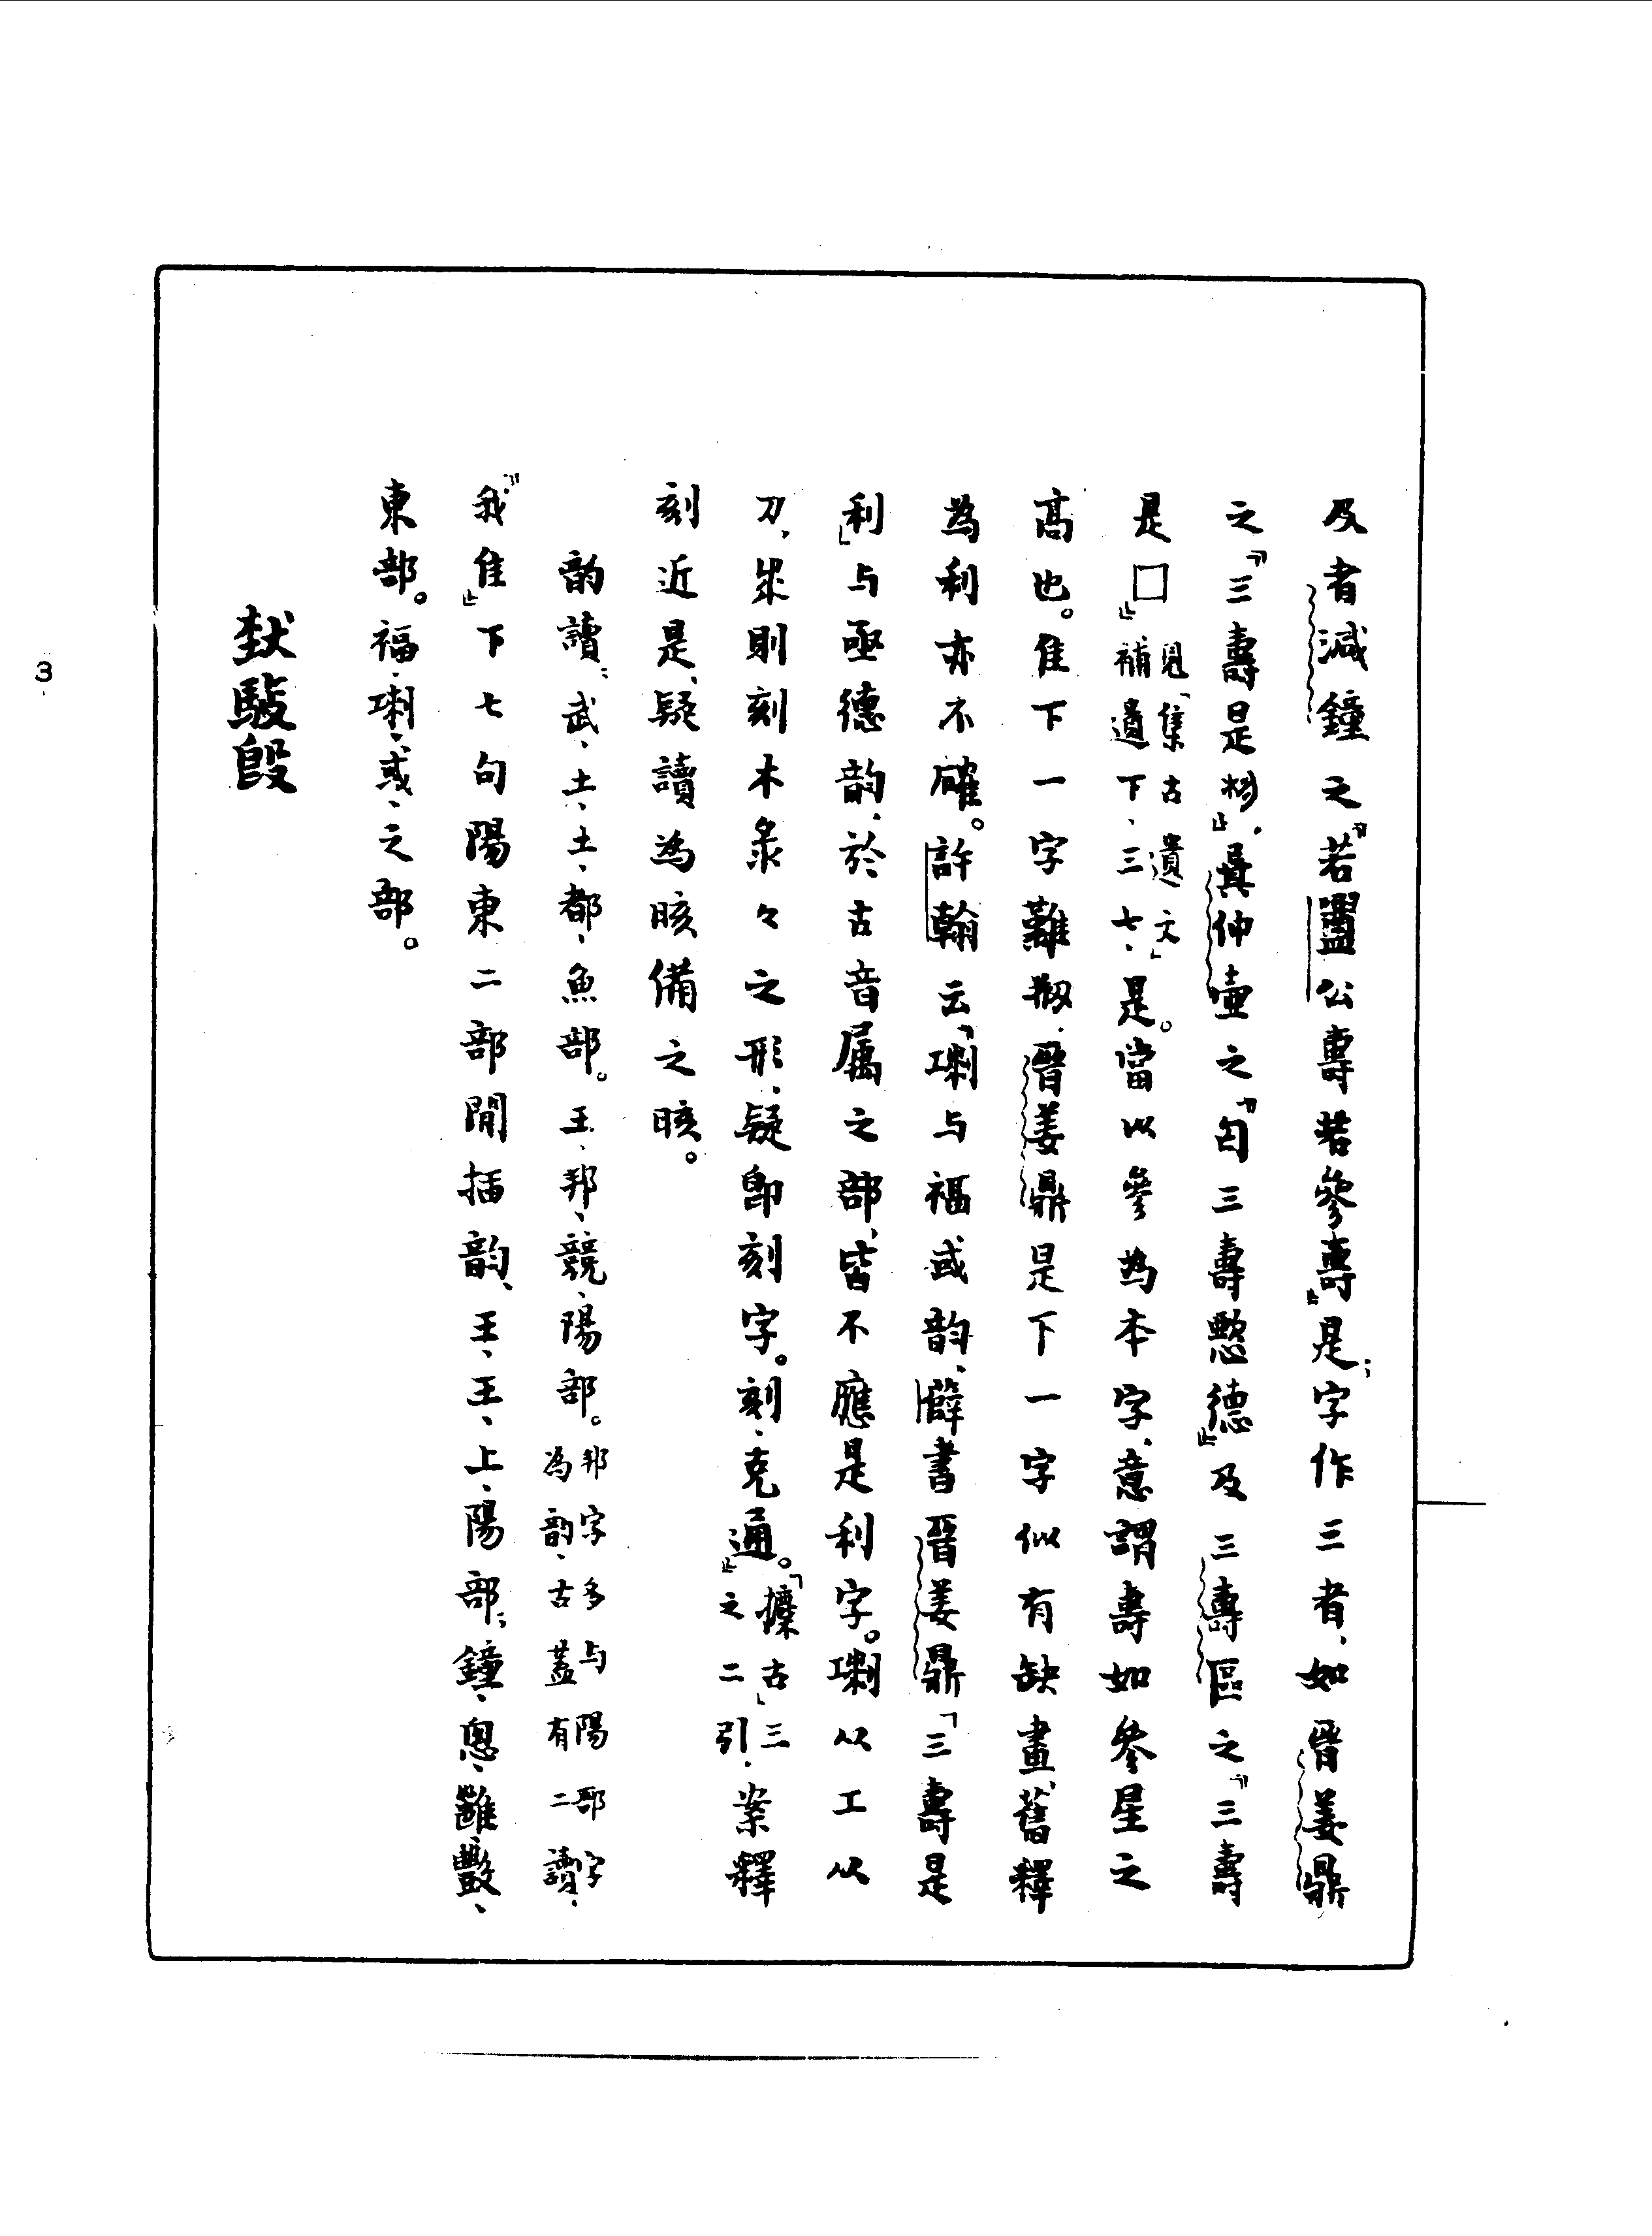 及者減鐘之「若𥂴公壽若參壽」是；字作三者、如晉姜鼎
之「三壽是利」、㠱仲壺之「匄三壽懿德」及三壽區之「三壽
是□」見「集古遺文」補遺下、三七、是。當以參為本字、意謂壽如參星之
高也。隹下一字難刱、晉姜鼎是下一字似有缺畫、舊釋
為利亦不確。許翰云「㔉与福或韵、薛書晉姜鼎「三壽是
利」与亟德韵、於古音属之部、皆不應是利字。㔉从工从
刀、㭉則刻木彔々之形、疑即刻字。刻、克通。」「攈古」三之二引、案釋
刻近是、疑讀為晐備之晐。
韵讀：武、土、土、都、魚部。王、邦、競、陽部。邦字多与陽部字為韵、古蓋有二讀、
「我隹」下七句陽東二部間插韵、王、王、上、陽部；鐘、悤、雝、
東部。福、㔉、或、之部。
㝬𩣡𣪘
3